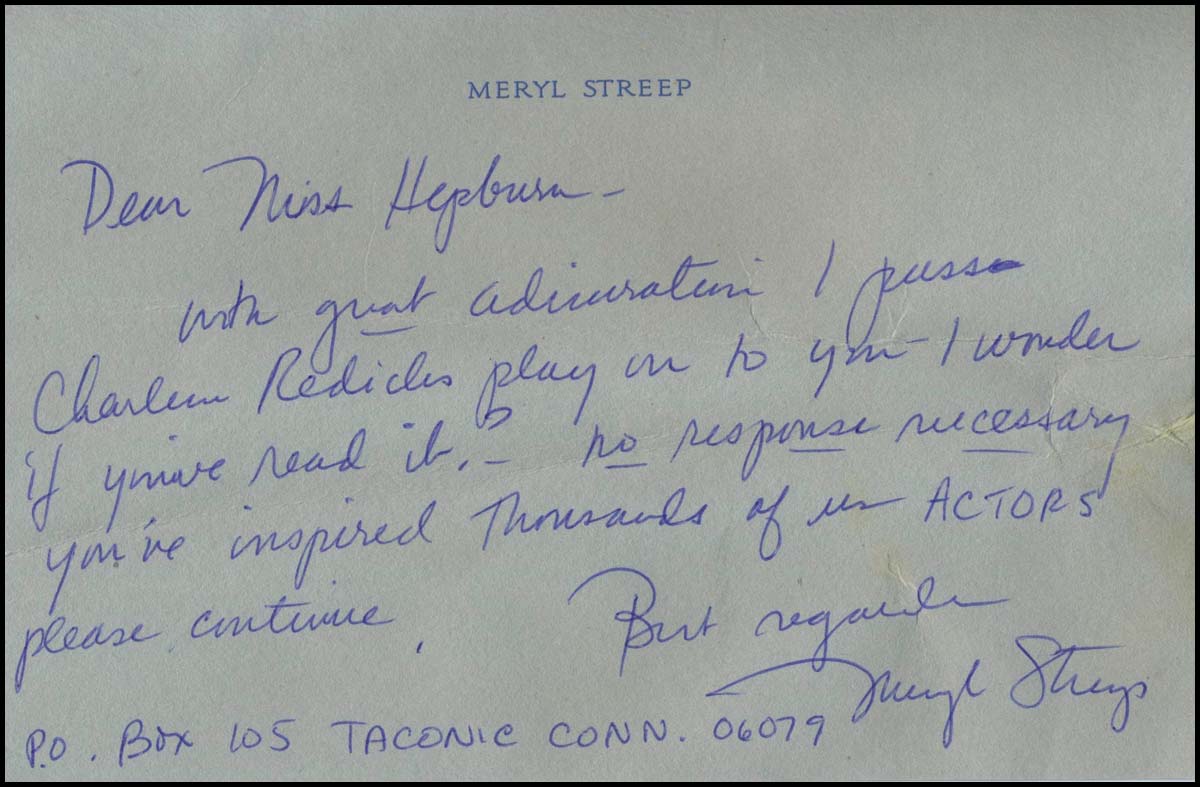 MERYL STREEP
Dear Miss Hepburn –
with great admiration I pass
Charlene Redicks play on to you – I wonder
if you've read it? – no response necessary
you've inspired thousands of us ACTORS
please continue.
Best regards
Meryl Streep
P.O. Box 105 TACONIC CONN. 06079